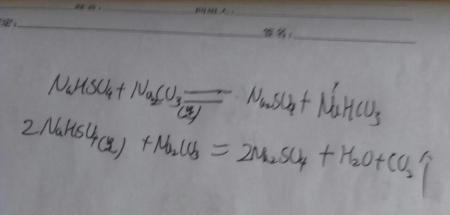 签名:
NaHSO4 + Na2CO3 == Na2SO4 + NaHCO3
(过)
2NaHSO4(过) + Na2CO3 = 2Na2SO4 + H2O + CO2↑